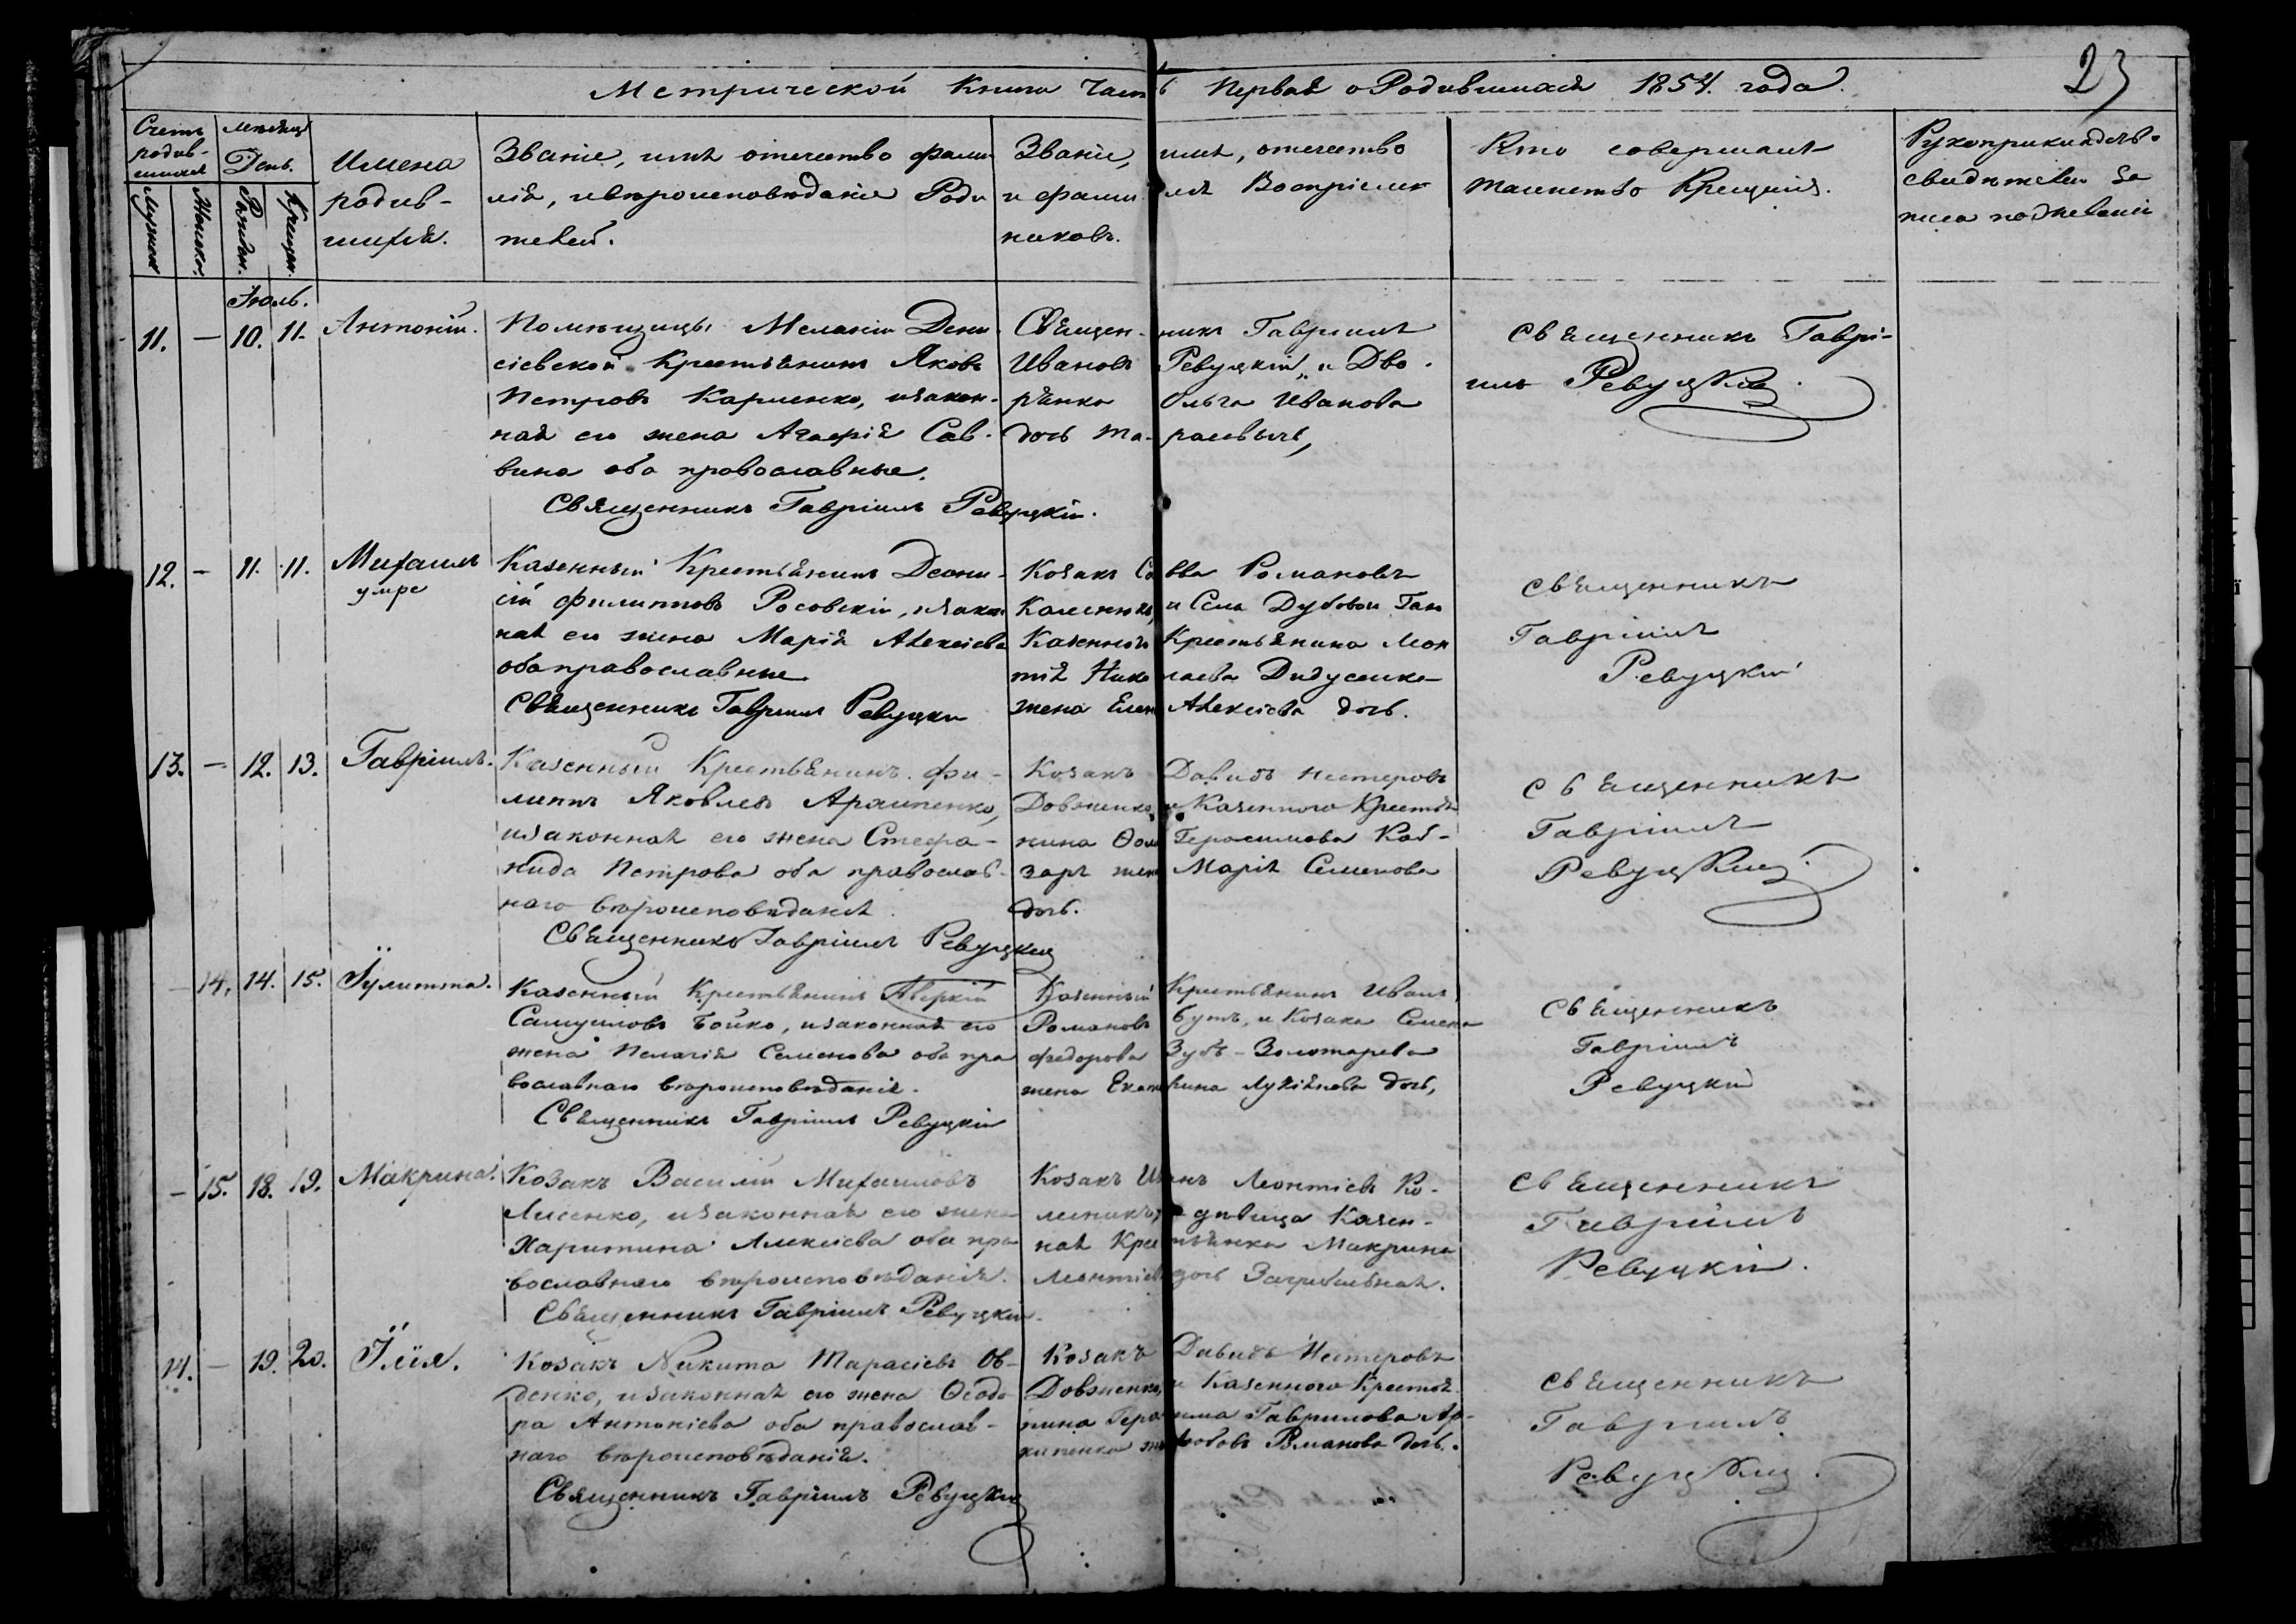 23
Метрической Книги Часть Первая о Родившихся 1854. года.
Счетъ родившихся
Мужеск.
Женско.
Мѣсяцъ
День.
Рожден.
Крещен.
Имена
родив-
шихся.
Званіе, имя отечество фами
лія, ивѣроисповѣданіе Роди
телей.
Званіе, имя, отечество
и фамилія Воспріем
никовъ.
Кто совершалъ
таинство Крещенія.
Рукоприкладств.
свидѣтелей за
писа по желанію
Іюль.
11. — 10. 11. Антоній.
Помѣщицы Меланіи Дени
сіевской Крестьянинъ Яковъ
Петровъ Карпенко, изакон-
ная его жена Агафія Сав-
вина оба православные.
Священникъ Гавріилъ Ревуцкій.
Священ-никъ Гавріилъ
Ивановъ Ревуцкій, и Дво-
рянка Ольга Иванова
дочь Та-расевичъ,
Священникъ Гаврі-
илъ Ревуцкій.
12. — 11. 11. Михаилъ
умре
Казенный Крестьянинъ Діони-
сій Филиповъ Росовскій, изакон
ная его жена Марія Алексіева
оба православные
Священникъ Гавріилъ Ревуцкій
Козакъ Савва Романовъ
и Села Дубовои
Казенног Крестьянина
Николаева Дидусенка
жена Елена Алексіева дочь.
Священникъ
Гавріилъ
Ревуцкій
13. — 12. 13. Гавріилъ.
Казенный Крестьянинъ Фи-
липпъ Яковлевъ Архипенко,
изаконная его жена Стефа-
нида Петрова оба православ-
наго вѣроисповѣданія
Священникъ Гавріилъ Ревуцкій
Козакъ Давидъ Нестеровъ
Довженко, и Казенного Крестья
нина Ѳомы Герасимова Коб-
заря жена Марія Семенова
дочь.
Священникъ
Гавріилъ
Ревуцкій.
— 14. 14. 15. Іулитта.
Казенный Крестьянинъ Аверкій
Самуиловъ Бойко, изаконная его
жена Пелагія Семенова оба пра
вославнаго вѣроисповѣданія.
Священникъ Гавріилъ Ревуцкій
Казенный Крестьянинъ Иванъ
Романовъ Бутъ, и Козака Семена
Федорова Зубъ-Золотарева
жена Екатерина Лукіянова дочь,
Священникъ
Гавріилъ
Ревуцкій
— 15. 18. 19. Макрина.
Козакъ Василій Михаиловъ
Лисенко, изаконная его жена
Харитина Алексіева оба пра
вославнаго вѣроисповѣданія.
Священникъ Гавріилъ Ревуцкій.
Козакъ Иванъ Леонтіевъ Ко-
девица Казен-
ная Крестьянка Макрина
Леонтіева дочь Загребельная.
Священникъ
Гавріилъ
Ревуцкій.
14. — 19. 20. Ілія.
Козакъ Никита Тарасіевъ Ов-
денко, изаконная его жена Ѳеодо
ра Антоніева оба православ-
наго вѣроисповѣданія.
Священникъ Гавріилъ Ревуцкій
Козакъ Давидъ Нестеровъ
Довженко, и Казенного Крестья
нина Герасима Гаврилова Ар-
хипенка жена Любовь Романова дочь.
Священникъ
Гавріилъ
Ревуцкій.